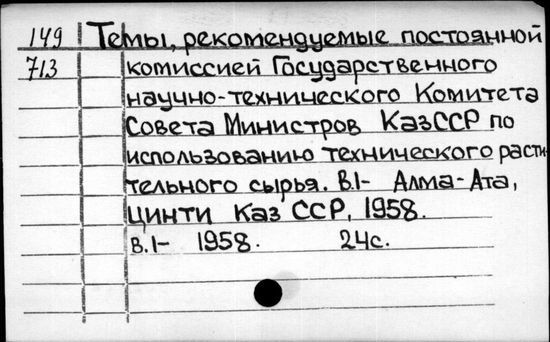 149 Темы, рекомендуемые постоянной
713 комиссией Государственного
научно-технического Комитета
Совета Министров КазССР по
использованию технического расти-
тельного сырья. В.1- Алма-Ата,
ЦИНТИ Каз ССР, 1958.
В.1- 1958. 24с.